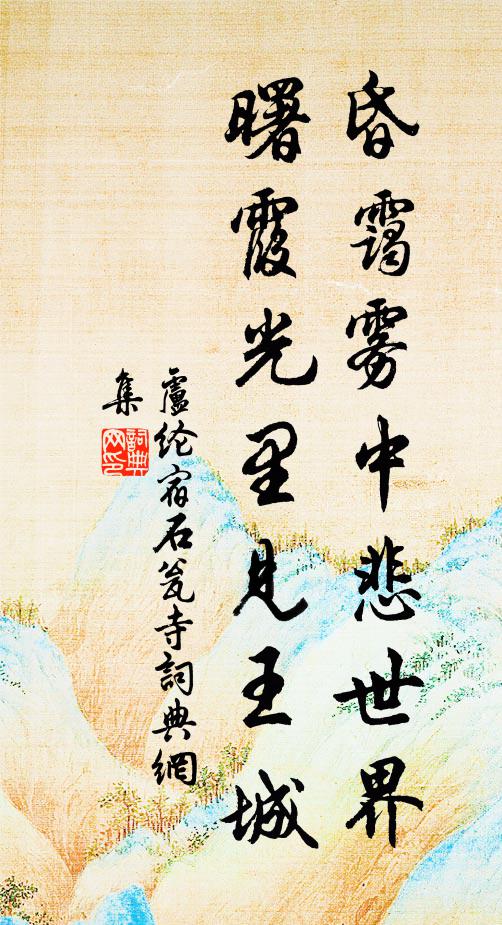 昏霭雾中悲世界
曙霞光里见王城
盧纶宿石瓮寺詞典網
集
詞典
网印